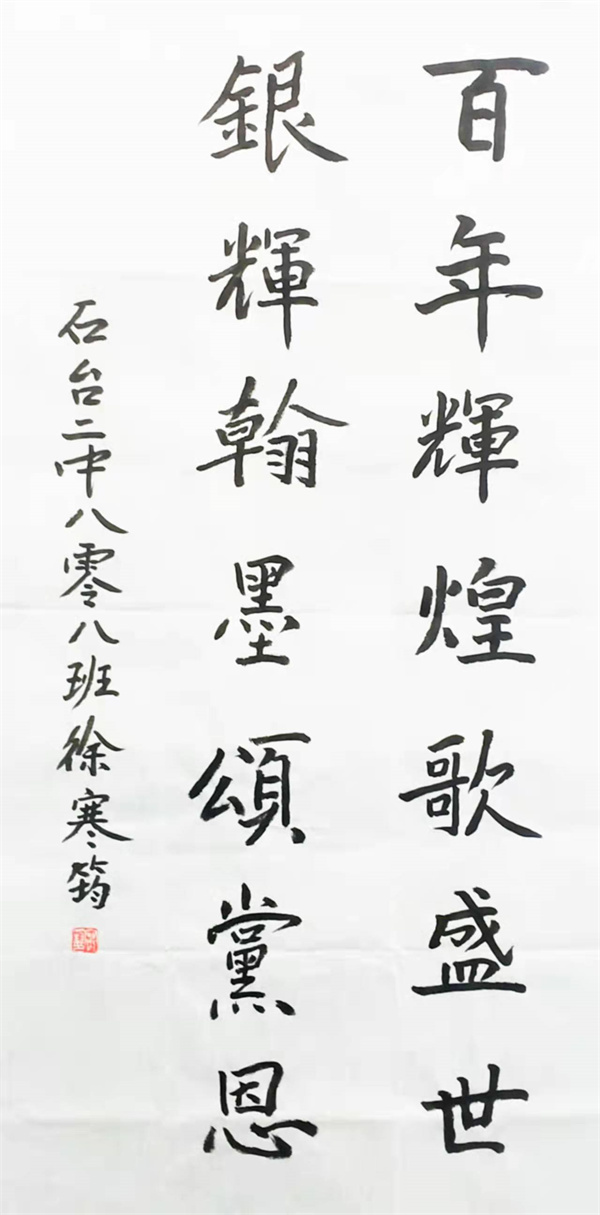 百年輝煌歌盛世
銀輝翰墨頌黨恩
石台二中八零八班徐寒筠